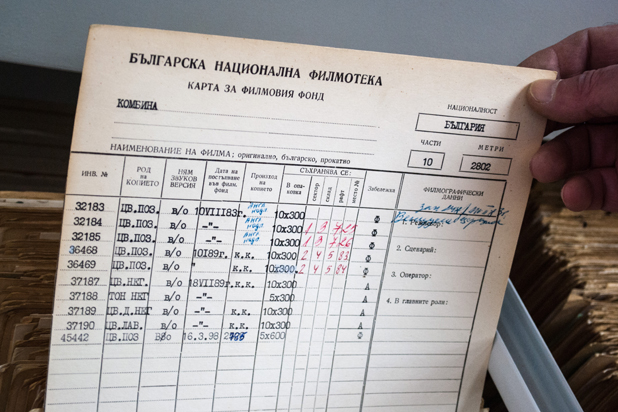 БЪЛГАРСКА НАЦИОНАЛНА ФИЛМОТЕКА
КАРТА ЗА ФИЛМОВИЯ ФОНД
КОМБИНА
НАЦИОНАЛНОСТ
БЪЛГАРИЯ
ЧАСТИ МЕТРИ
10 2802
НАИМЕНОВАНИЕ НА ФИЛМА; оригинално, българско, прокатно
ИНВ. № РОД НА КОПИЕТО НЯМ ЗВУКОВ ВЕРСИЯ Дата на постъпване във филм. фонд Произход на копието СЪХРАНЯВА СЕ: В опаковка сектор склад рафт място № Забележка ФИЛМОГРАФИЧЕСКИ ДАННИ
32183 ЦВ.ПОЗ. в/о 10VIII83г. 10х300 Ф
32184 ЦВ.ПОЗ. в/о -"- 10х300 1 3 Ф
32185 ЦВ.ПОЗ. в/о -"- 10х300 1 3 Ф
36468 ЦВ.ПОЗ. в/о 10I89г. к.к. 10х300 2 4 5 83 Ф
36469 ЦВ.ПОЗ. в/о " к.к. 10х300. 2 4 5 84 Ф
37187 ЦВ.НЕГ. в/о 18VII89г. к.к. 10х300 А
37188 ТОН НЕГ. -"- 5х300 А
37189 ЦВ.Д.НЕГ в/о -"- к.к. 10х300 А
37190 ЦВ.ЛАВ. в/о -"- к.к. 10х300 А
45442 ЦВ.ПОЗ в/о 16.3.98 5х600 Ф
2. Сценарий:
3. Оператор:
4. В главните роли: